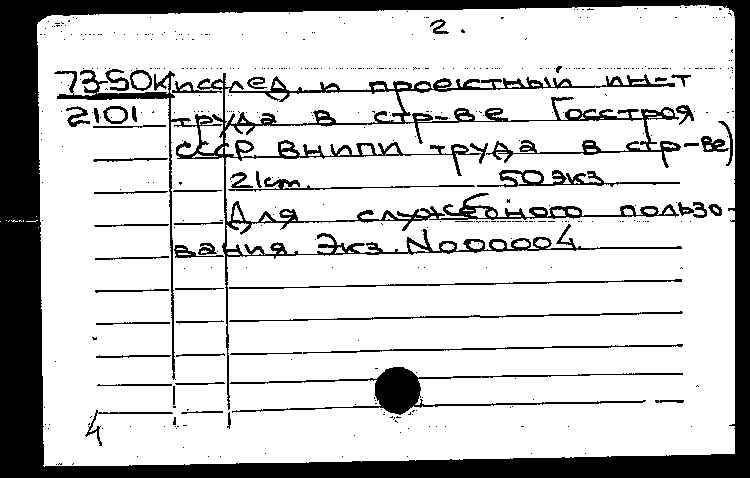 2.
73-50К исслед. и проектный ин-т
2101 труда в стр-ве Госстроя
СССР ВНИПИ труда в стр-ве)
21ст. 50 экз.
Для служебного пользо-
вания. Экз. No00004
4